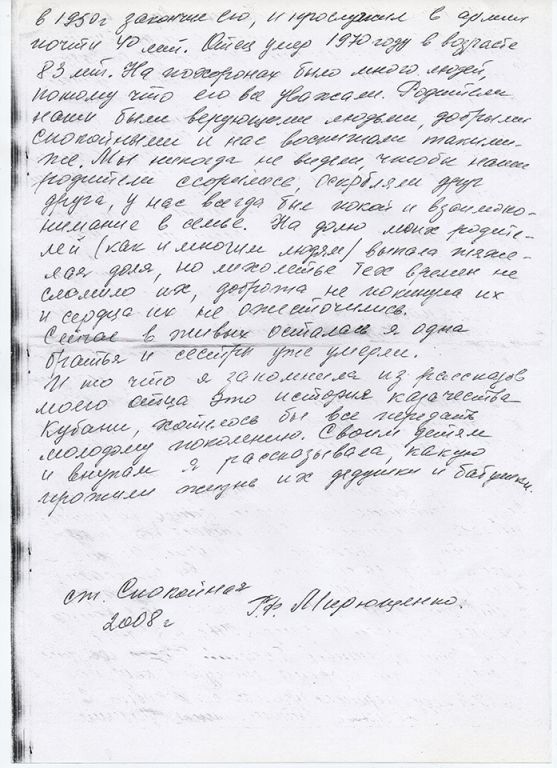 в 1950г закончил его, и прослужил в армии
почти 40 лет. Отец умер 1970 году в возрасте
83 лет. На похоронах было много людей,
потому что его все уважали. Родители
наши были верующими людьми, добрыми
спокойными и нас воспитали такими-
же. Мы никогда не видели, чтобы наши
родители ссорились, оскрбляли друг
друга, у нас всегда был покой и взаимопо-
нимание в семье. На долю моих родите-
лей (как и многим людям) выпала тяже-
лая доля, но лихолетье тех времен не
сломило их, доброта не покинула их
и сердца их не ожесточились.
Сейчас в живых осталась я одна
братья и сестры уже умерли.
И то что я запомнила из рассказов
моего отца это история казачества
Кубани, хотелось бы все передать
молодому поколению. Своим детям
и внукам я рассказывала, какую
прожили жизнь их дедушки и бабушки.
ст. Спокойная
2008г
Мирющенко.